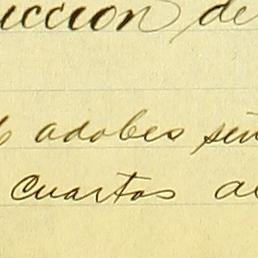 uccion de
adobes sin
cuartos al